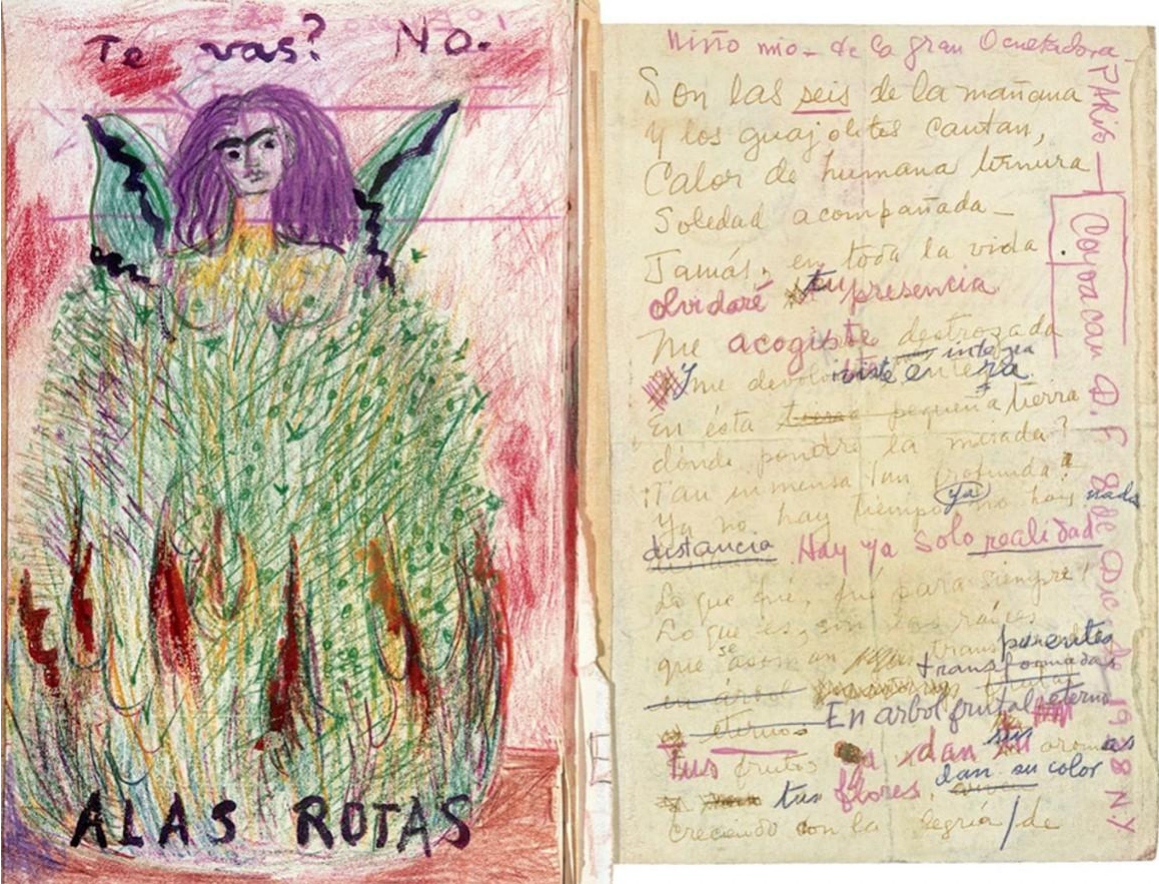 Te vas? No.
ALAS ROTAS
Niño mio_ de la gran Ocultadora_
Son las seis de la mañana
y los guajolotes cantan,
Calor de humana ternura
Soledad acompañada_
Jamás, en toda la vida
olvidaré tu presencia
Me acogiste destrozada
Y me devolviste entera integra
En ésta pequeña tierra
dónde pondré la mirada?
¡Tan inmensa tan profunda!
Ya no hay tiempo ya no hay nada
distancia. Hay ya solo realidad
Lo que fué, fué para siempre!
Lo que es, son las raíces
que se asoman transparentes
transformadas
En arbol frutal eterno
Tus frutos dan sus aromas
tus flores dan su color
creciendo con la alegría de
PARIS— Coyoacan D.F. 8 de Dic de 1938 NY